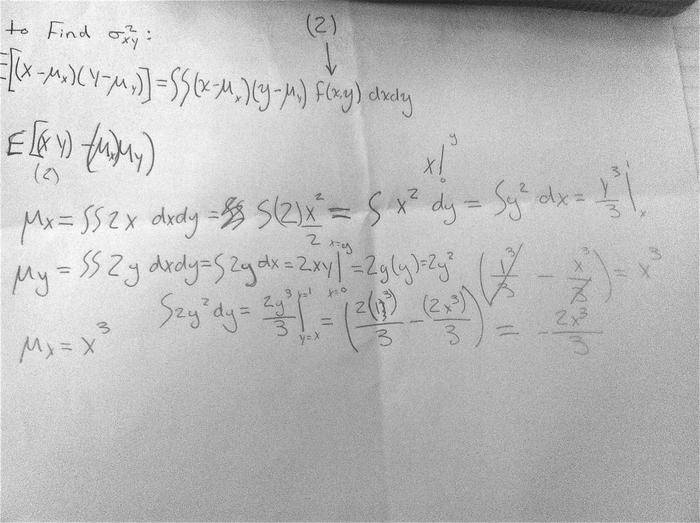 to Find σ²xy:
(2)
↓
E[(x-μx)(Y-μy)] = ∫∫(x-μx)(y-μy) f(x,y) dxdy
E[(x y) - (μx)μy)
(2)
x|₀^y
μx = ∫∫2x dxdy = ∫(2)x²/2 = ∫ x² dy = ∫y² dx = y³/3|ₓ¹
μy = ∫∫2y dxdy = ∫2y dx = 2xy|x=0^x=y = 2y(y) = 2y² (y³/3 - x³/3) = x³
∫2y²dy = 2y³/3|y=x^y=1 = (2(1³)/3 - (2x³)/3) = -2x³/3
μx = x³